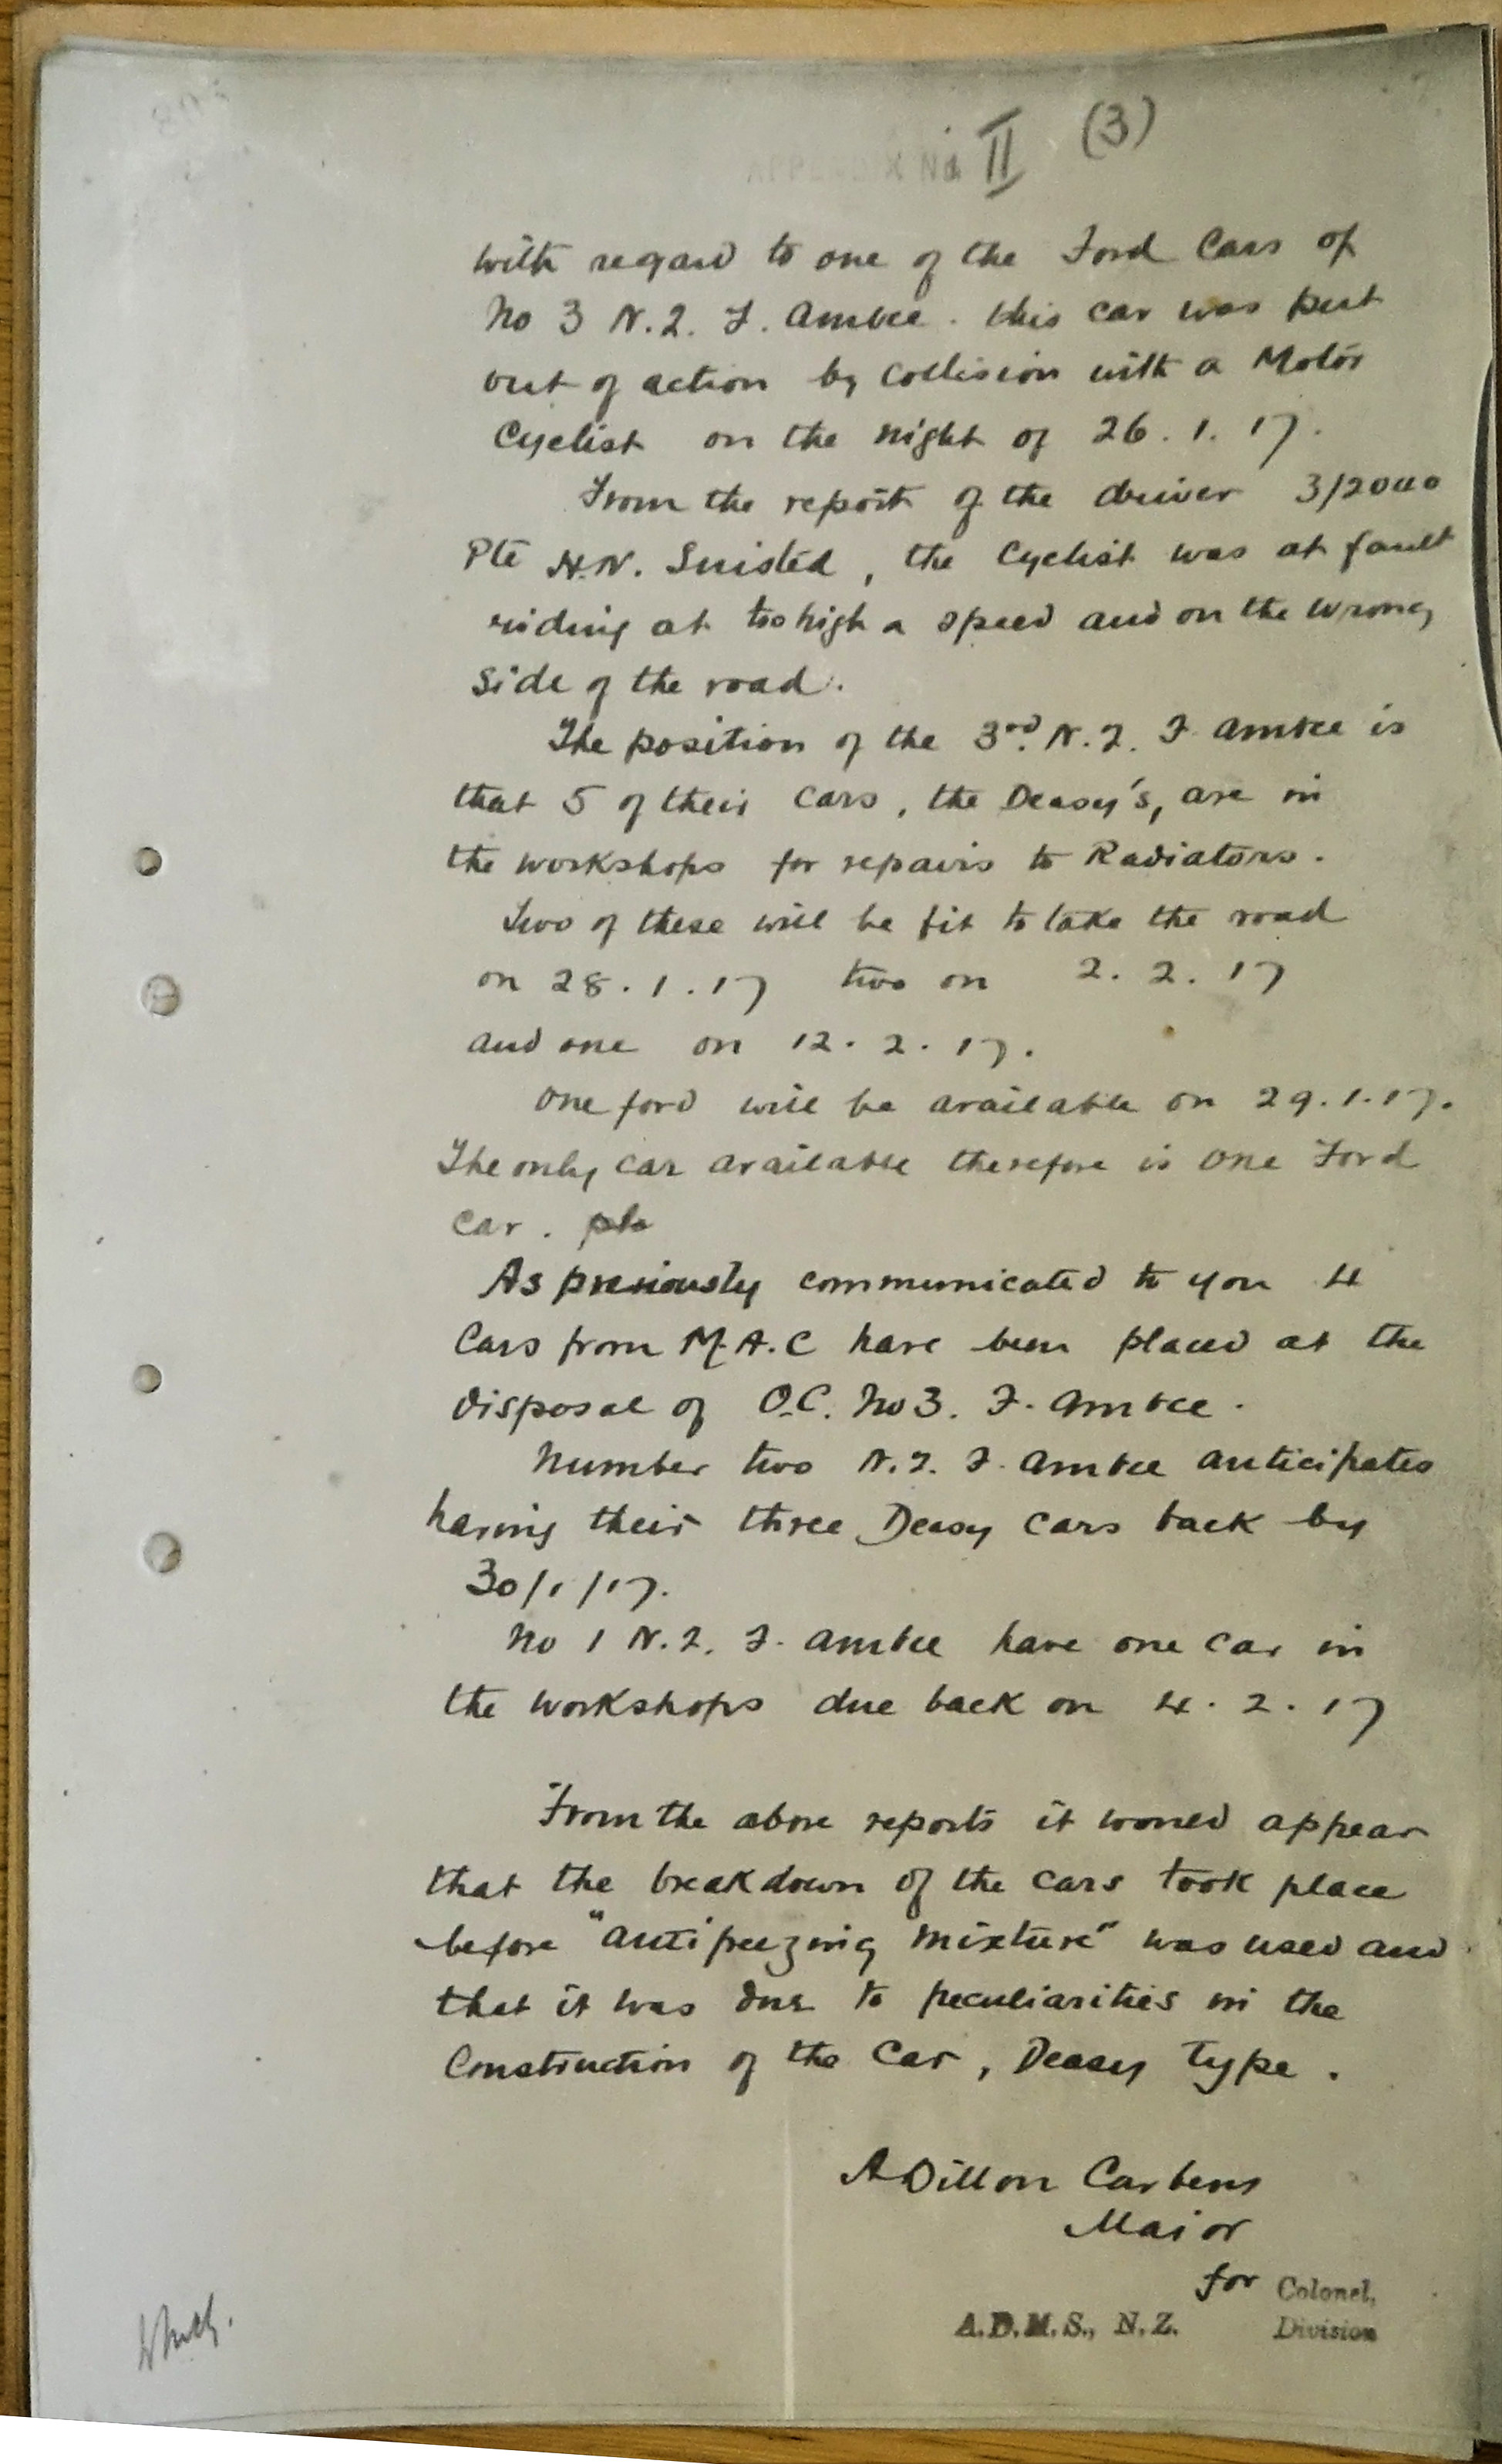 APPENDIX No. II (3)
With regard to one of the Ford Cars of
No 3 N.Z. F. Ambce. this car was put
out of action by Collision with a Motor
Cyclist on the night of 26.1.17.
From the report of the driver
Pte H.N. Suisted, the Cyclist was at fault
riding at too high a speed and on the wrong
side of the road.
The position of the 3rd. N.Z. F. Ambce is
that 5 of their Cars, the Deasy's, are in
the workshops for repairs to Radiators.
Two of these will be fit to take the road
on 28.1.17 two on 2.2.17
and one on 12.2.17.
One ford will be available on 29.1.17.
The only car available therefore is One Ford
Car.
As previously communicated to you 4
Cars from M.A.C have been placed at the
disposal of O.C. No 3. F. Ambce.
Number two N.Z. F. Ambce anticipates
having their three Deasy Cars back by
30/1/17.
No 1 N.Z. F. Ambce have one Car in
the workshops due back on 4.2.17
From the above reports it would appear
that the breakdown of the cars took place
before "Antifreezing Mixture" was used and
that it was due to peculiarities in the
Construction of the Car, Deasy Type.
A Dillon Carbery
Major
for Colonel,
A.D.M.S., N.Z. Division